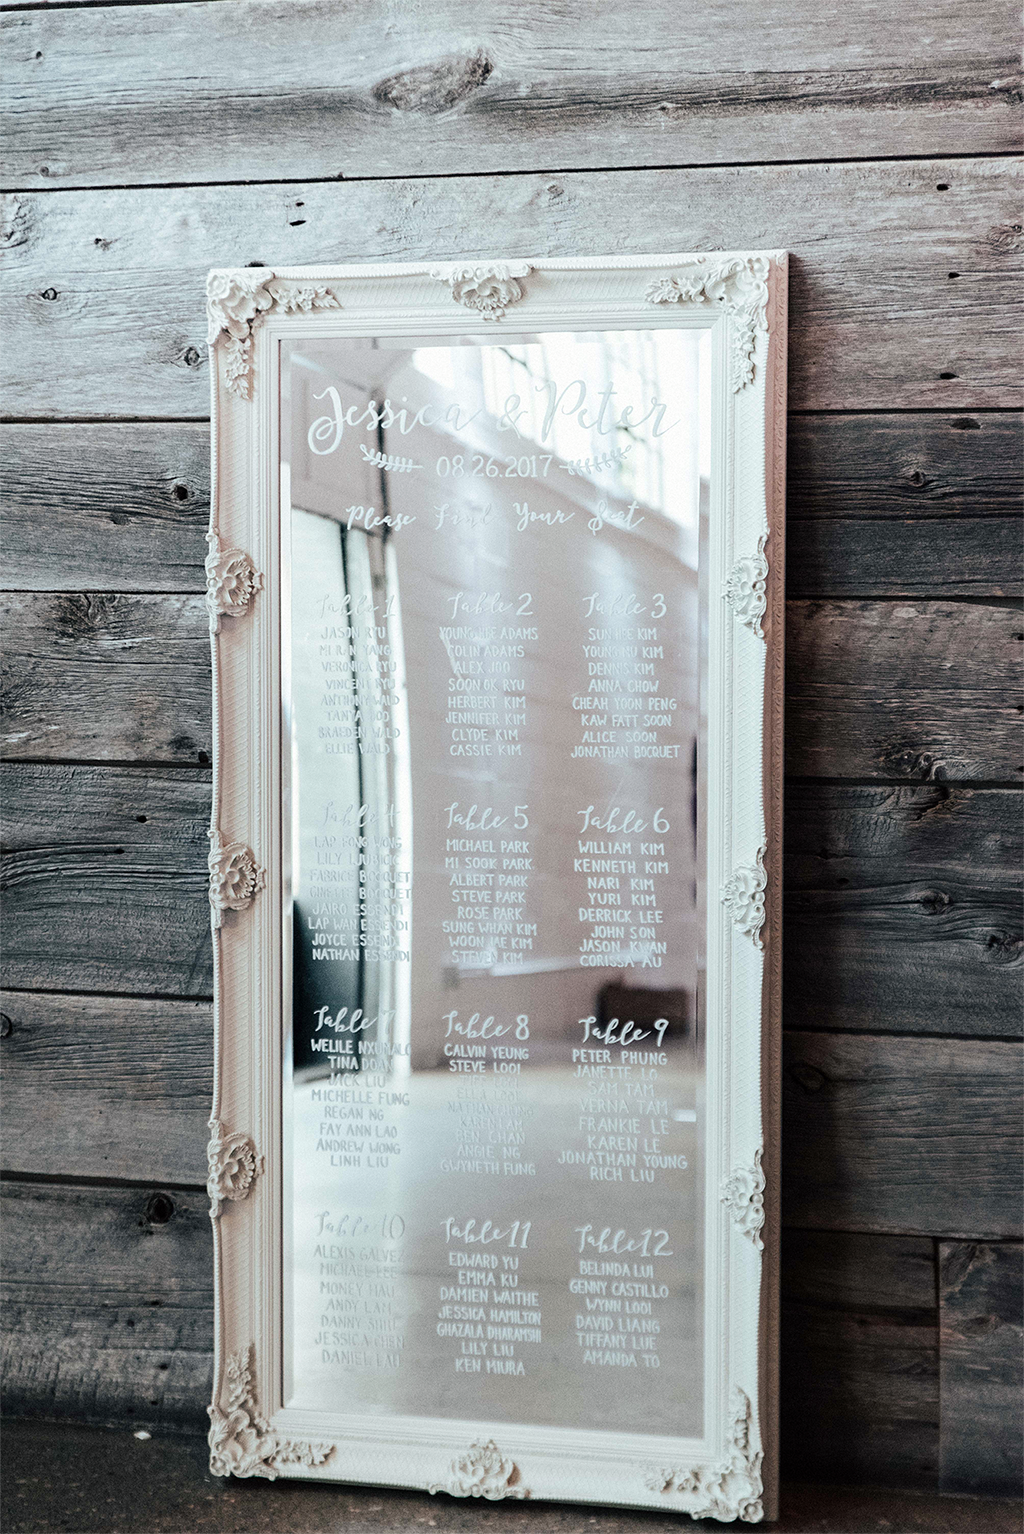 Jessica & Peter
08.26.2017
Please Find Your Seat
Table 1
JASON RYU
MI RAN YANG
VERONICA RYU
VINCENT RYU
ANTHONY WALD
TANYA JOO
BRAEDEN WALD
ELLIE WALD
Table 2
YOUNG HEE ADAMS
COLIN ADAMS
ALEX JOO
SOON OK RYU
HERBERT KIM
JENNIFER KIM
CLYDE KIM
CASSIE KIM
Table 3
SUN HEE KIM
YOUNG HU KIM
DENNIS KIM
ANNA CHOW
CHEAH YOON PENG
KAW FATT SOON
ALICE SOON
JONATHAN BOCQUET
Table 4
LAP FONG WONG
LILY
FABRICE BOCQUET
GINETTE BOCQUET
JAIRO ESSENDI
LAP WAN ESSENDI
JOYCE ESSENDI
NATHAN ESSENDI
Table 5
MICHAEL PARK
MI SOOK PARK
ALBERT PARK
STEVE PARK
ROSE PARK
SUNG WHAN KIM
WOON JAE KIM
STEVEN KIM
Table 6
WILLIAM KIM
KENNETH KIM
NARI KIM
YURI KIM
DERRICK LEE
JOHN SON
JASON KWAN
CORISSA AU
Table 7
WELILE NXUMALO
TINA DOAN
JACK LIU
MICHELLE FUNG
REGAN NG
FAY ANN LAO
ANDREW WONG
LINH LIU
Table 8
CALVIN YEUNG
STEVE LOOI
ELLA LOOI
NATHAN
KAREN LAM
BEN CHAN
ANGIE NG
GWYNETH FUNG
Table 9
PETER PHUNG
JANETTE LO
SAM TAM
VERNA TAM
FRANKIE LE
KAREN LE
JONATHAN YOUNG
RICH LIU
Table 10
ALEXIS GALVEZ
MICHAEL LEE
MONEY HAU
ANDY LAM
DANNY SHIU
JESSICA CHEN
DANIEL LAU
Table 11
EDWARD YU
EMMA KU
DAMIEN WAITHE
JESSICA HAMILTON
GHAZALA DHARAMSHI
LILY LIU
KEN MIURA
Table 12
BELINDA LUI
GENNY CASTILLO
WYNN LODI
DAVID LIANG
TIFFANY LUE
AMANDA TO